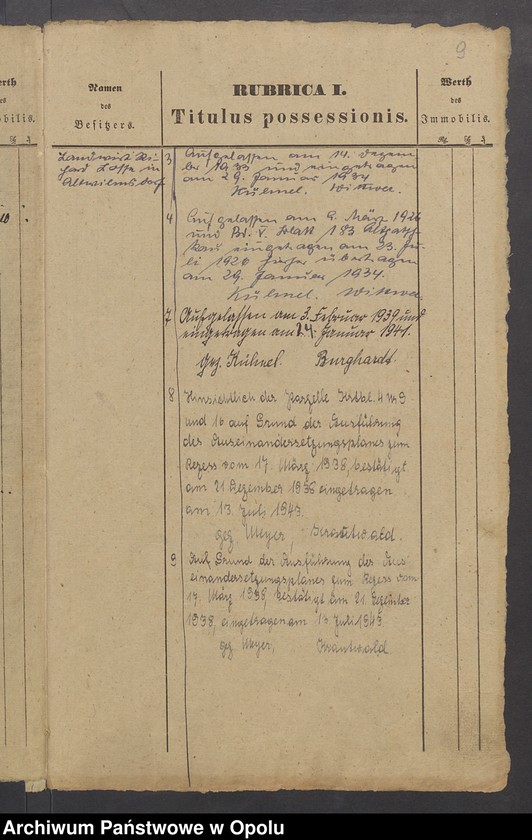 9
Namen
des
Besitzers.
RUBRICA I.
Titulus possessionis.
Werth
des
Immobilis.
Landwirt Ri-
chard Losse in
Altwilmsdorf
3 Aufgelassen am 14. Dezem-
ber 1933 und eingetragen
am 29. Januar 1934
Kühnel. Wittwer.
4 Aufgelassen am 9. März 1926
und Bd. V. Blatt 183
eingetragen am 23. Ju-
li 1926 hierher übertragen
am 29. Januar 1934.
Kühnel. Wittwer
7 Aufgelassen am 3. Februar 1939 und
eingetragen am 24. Januar 1941.
Gez. Kühnel. Burghardt.
8 Hinsichtlich der Parzelle Krtbl. 4 Nr 9
und 16 auf Grund der Ausführung
des Auseinandersetzungsplanes zum
Rezess vom 17. März 1938, bestätigt
am 21. Dezember 1938 eingetragen
am 13. Juli 1943.
gez. Meyer, Krautwald.
9 Auf Grund der Ausführung des Aus-
einandersetzungsplanes zum Rezess vom
17. März 1938, bestätigt am 21. Dezember
1938, eingetragen am 13 Juli 1943
gez. Meyer, Krautwald.
Archiwum Państwowe w Opolu